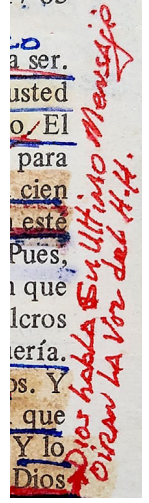 a ser.
usted
o. El
para
cien
esté
Pues,
que
lcros
ería.
os. Y
que
Y lo
Dios
Dios habla Su Ultimo Mensaje
Oiran LA Voz del H.H.